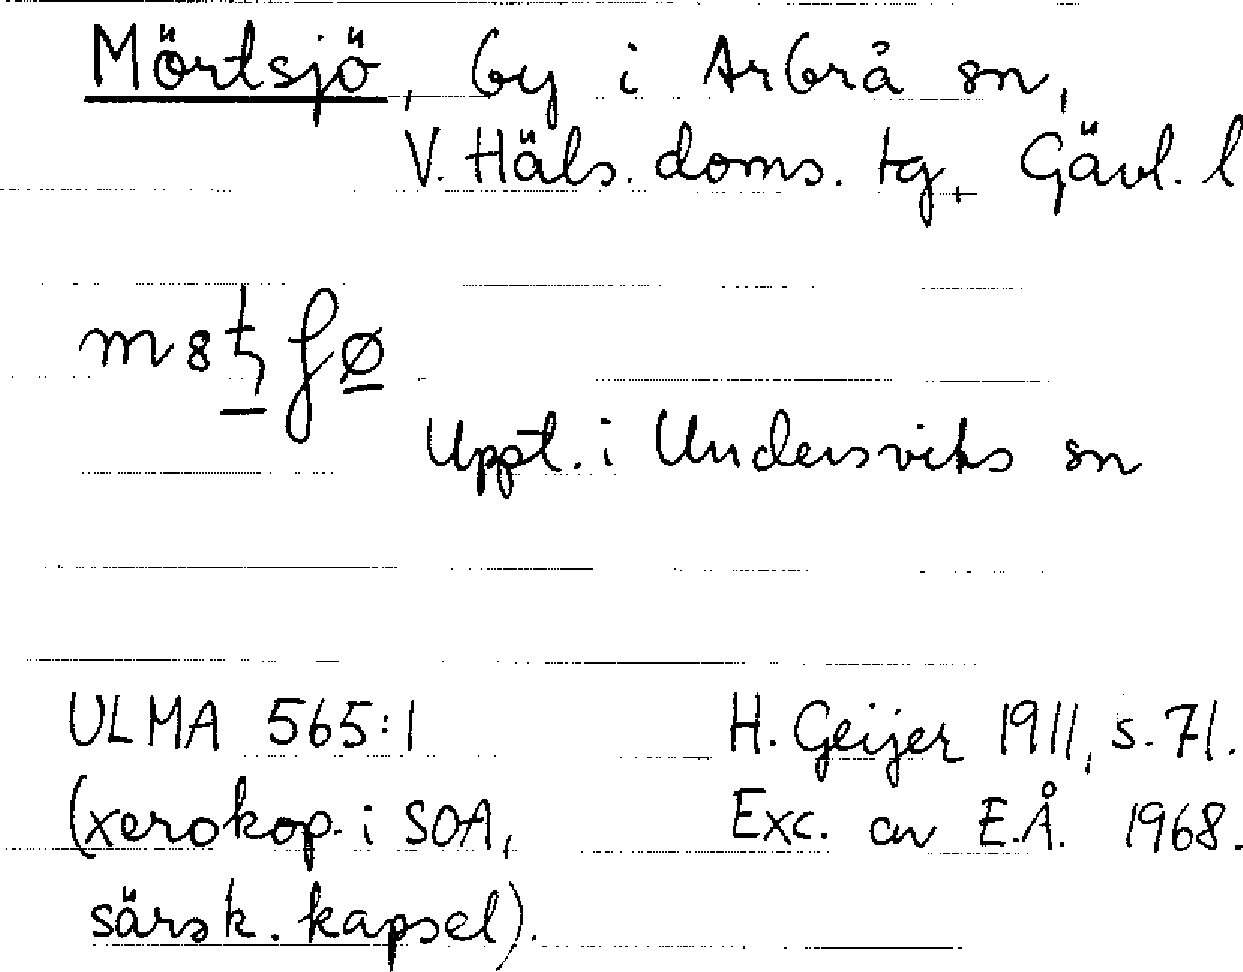 Mörtsjö, by i Arbrå sn,
V. Häls. doms. tg, Gävl. l
Uppt. i Undersviks sn
ULMA 565:1 H. Geijer 1911, s. 71.
(xerokop. i SOA, Exc. av E.Å. 1968.
särsk. kapsel).